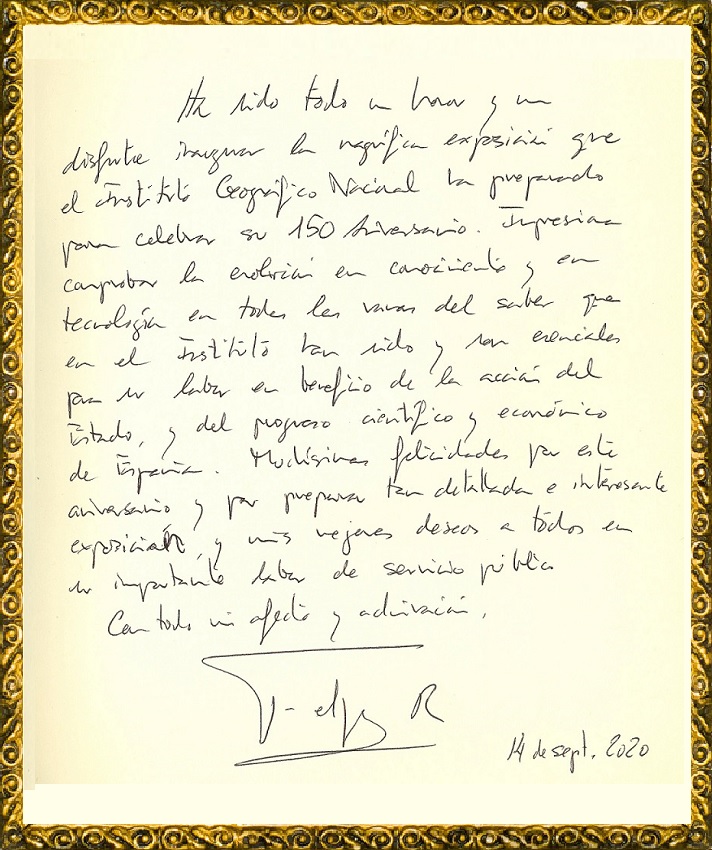 Ha sido todo un honor y un
disfrute inaugurar la magnífica exposición que
el Instituto Geográfico Nacional ha preparado
para celebrar su 150 Aniversario. Impresiona
comprobar la evolución en conocimiento y en
tecnología en todas las ramas del saber que
en el Instituto han sido y son esenciales
para su labor en beneficio de la acción del
Estado, y del progreso científico y económico
de España. Muchísimas felicidades por este
aniversario y por preparar tan detallada e interesante
exposición, y mis mejores deseos a todos en
su importante labor de servicio público
Con todo mi afecto y admiración,
Felipe R
14 de sept. 2020